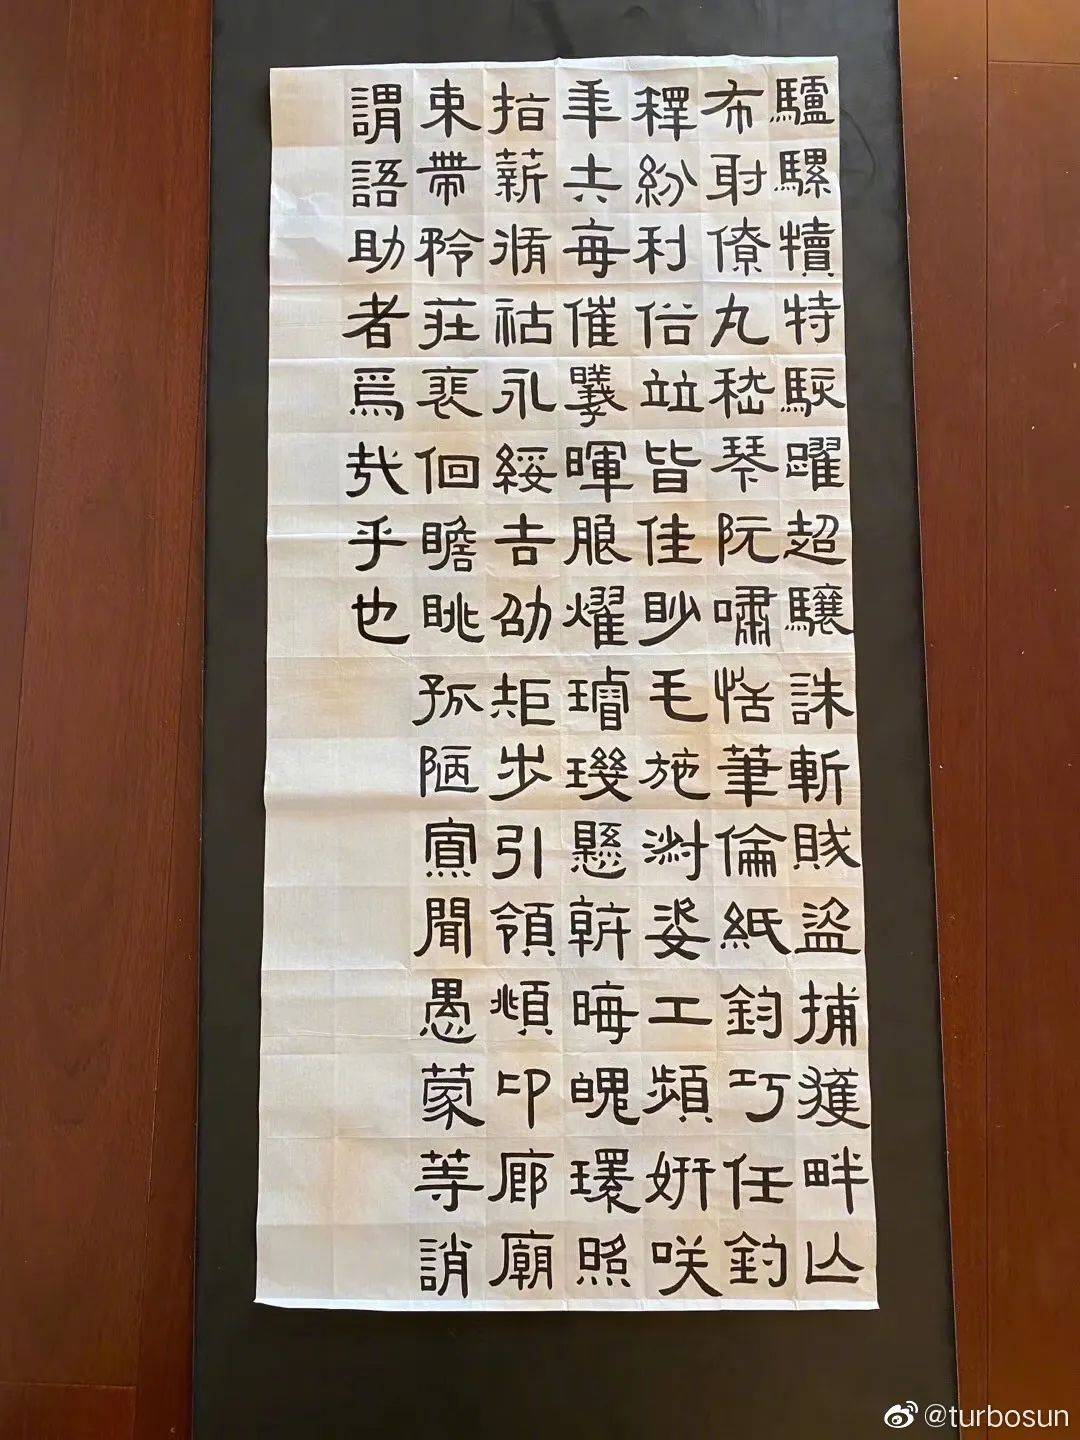 驢騾犢特駭躍超驤誅斬賊盜捕獲畔亾
布射僚丸嵇琴阮嘯恬筆倫紙鈞巧任釣
釋紛利俗竝皆佳眇毛施淑姿工頻妍咲
秊夫每催曦暉朖燿璿璣懸斡晦魄環照
指薪脩祜永綏吉劭矩步引領頫卬廊廟
束帶矜莊裵佪瞻眺孤陋寡聞愚蒙等誚
謂語助者焉哉乎也
@turbosun